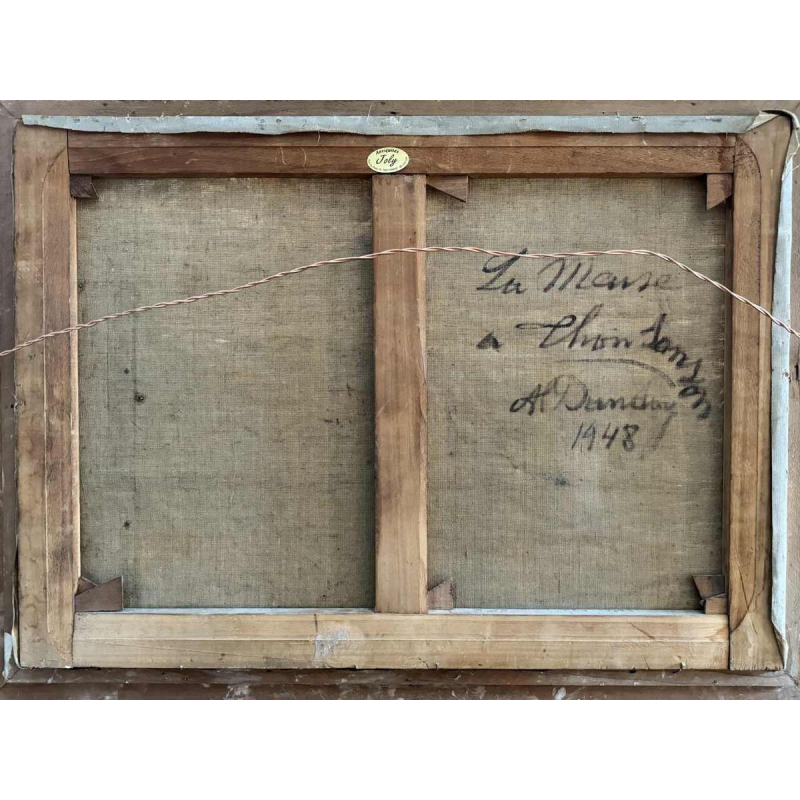 Antiquités
Joly
La Meuse
a Thon Samson
Al Dandoy
1948